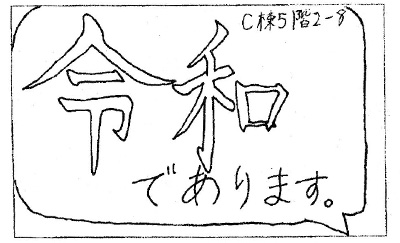 C棟5階2-8
令和
であります。